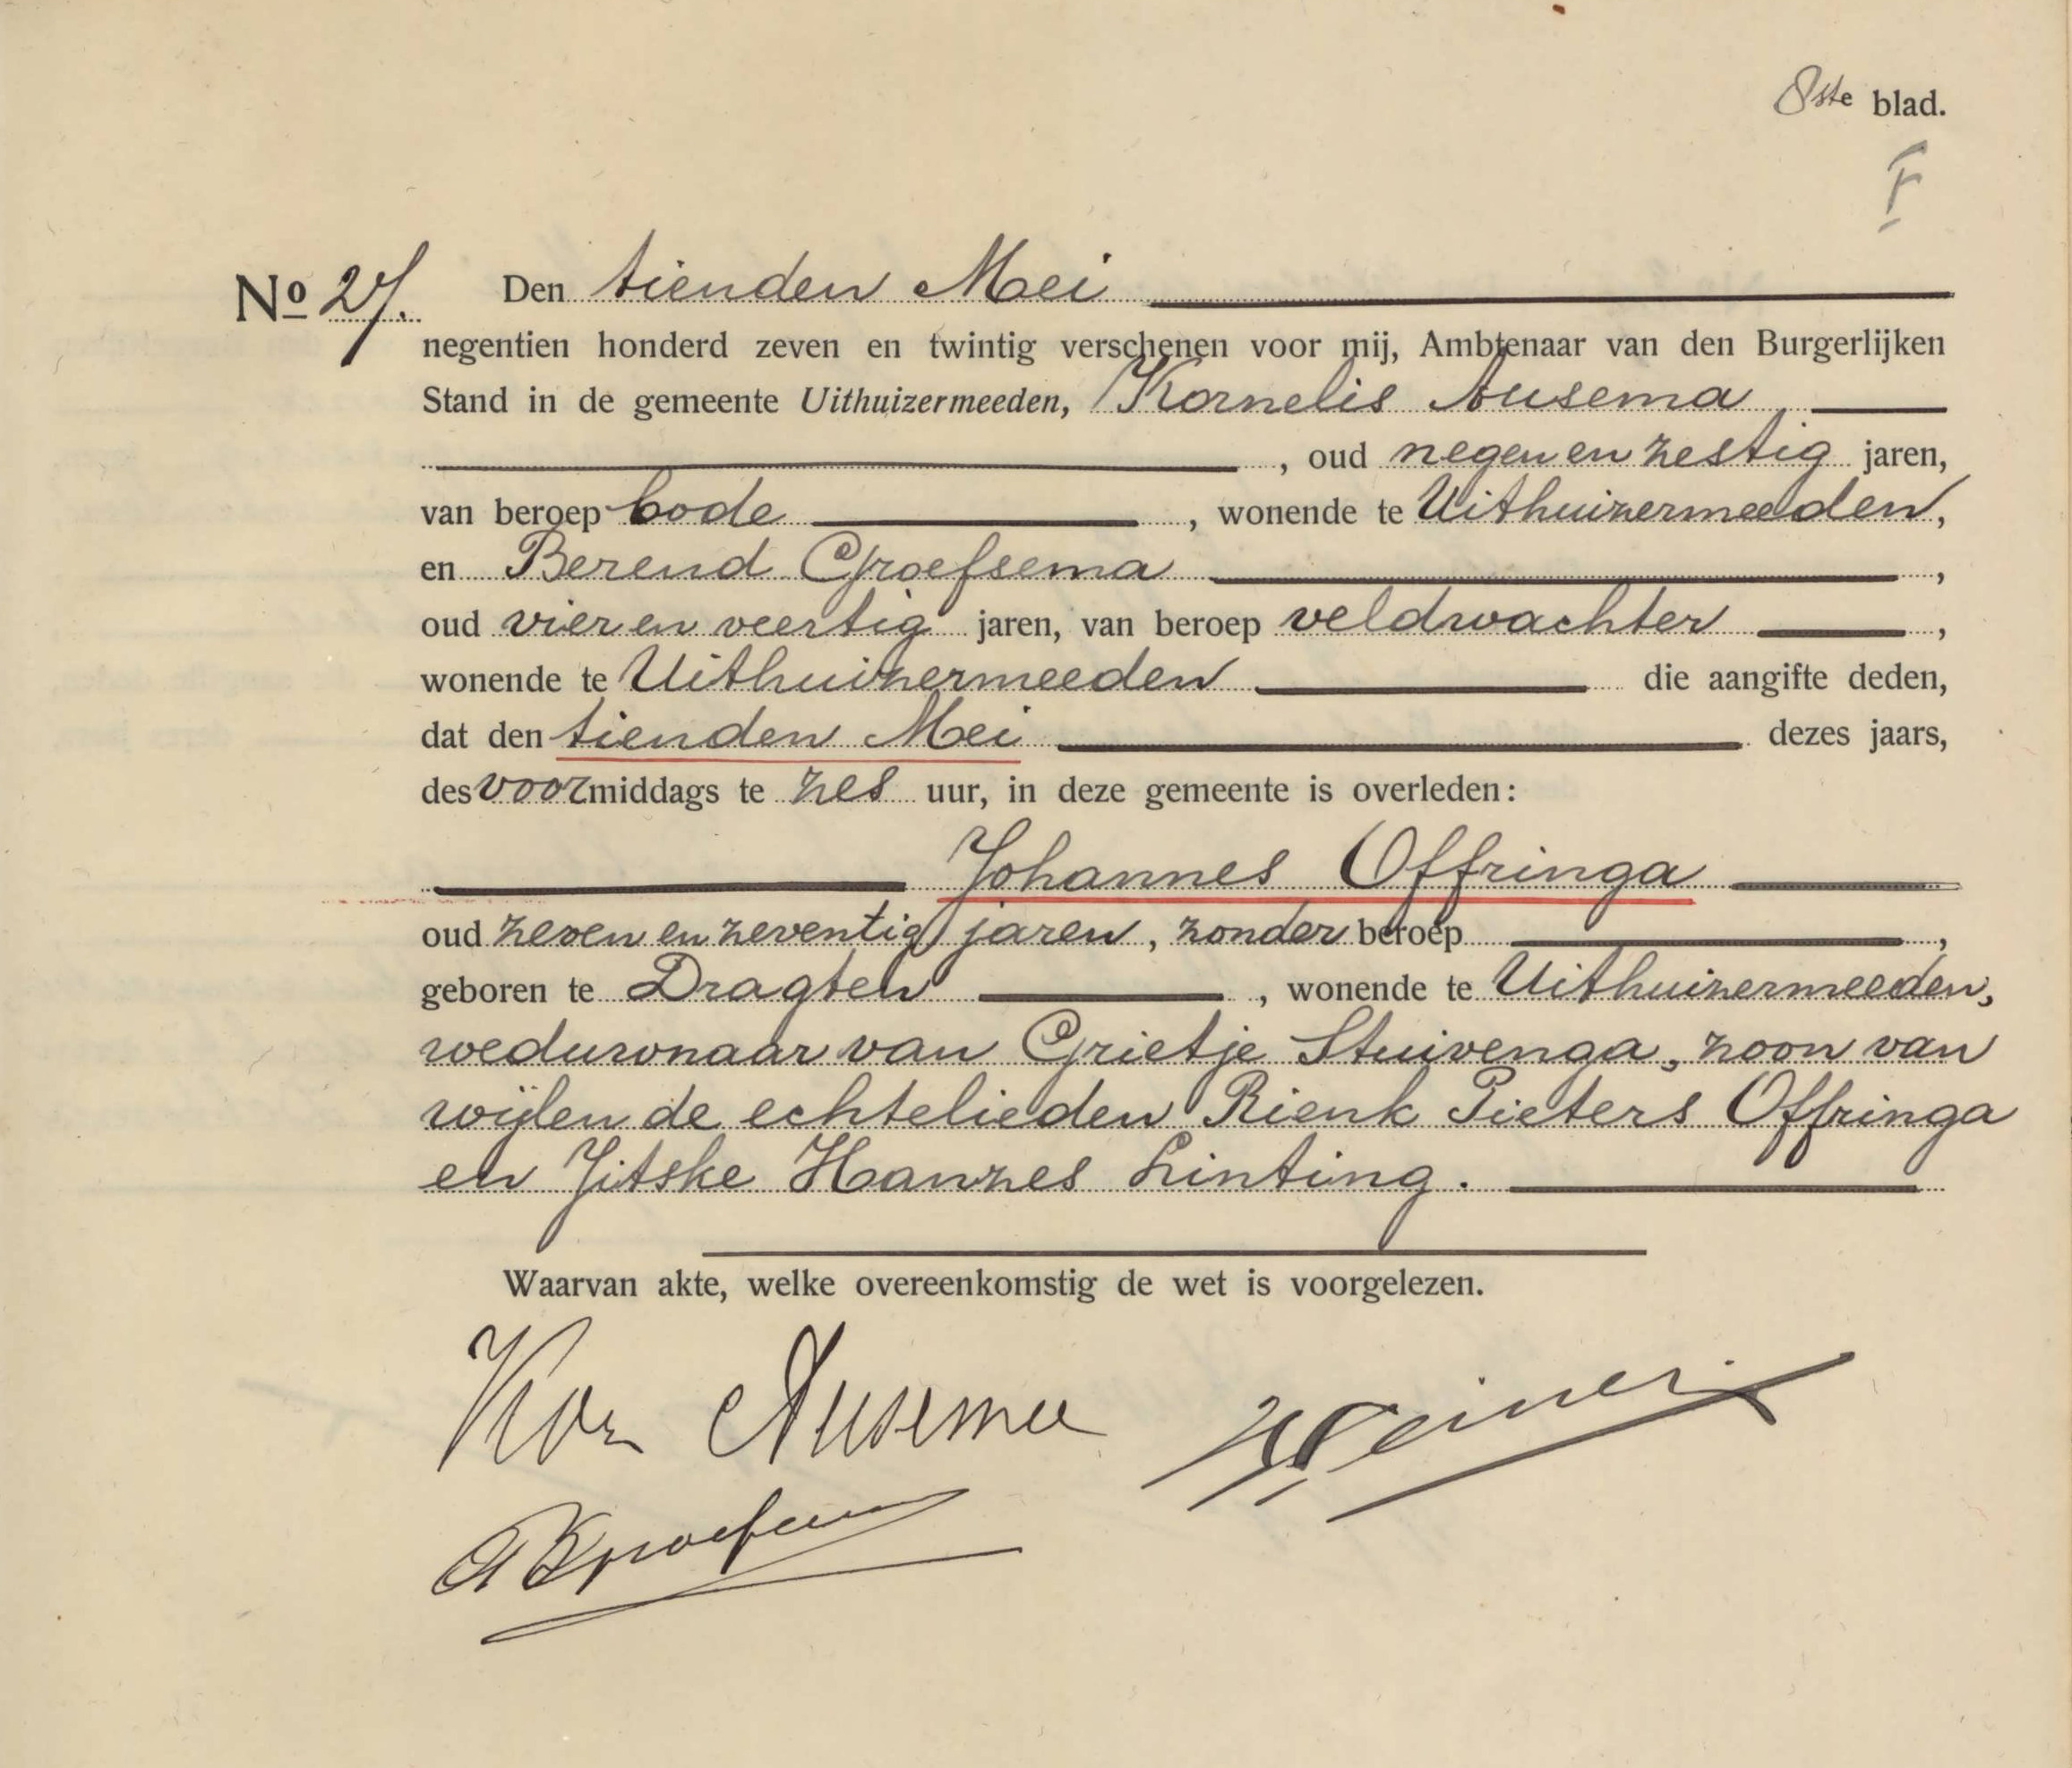 8ste blad.
F
No 27. Den tienden Mei
negentien honderd zeven en twintig verschenen voor mij, Ambtenaar van den Burgerlijken
Stand in de gemeente Uithuizermeeden, Kornelis Ausema
, oud negen en zestig jaren,
van beroep bode , wonende te Uithuizermeeden,
en Berend Groefsema ,
oud vier en veertig jaren, van beroep veldwachter ,
wonende te Uithuizermeeden die aangifte deden,
dat den tienden Mei dezes jaars,
des voormiddags te zes uur, in deze gemeente is overleden:
Johannes Offringa
oud zeven en zeventig jaren, zonder beroep ,
geboren te Dragten , wonende te Uithuizermeeden,
weduwnaar van Grietje Stuivenga, zoon van
wijlen de echtelieden Rienk Pieters Offringa
en Jitske Hanzes Linting.
Waarvan akte, welke overeenkomstig de wet is voorgelezen.
Kor Ausema